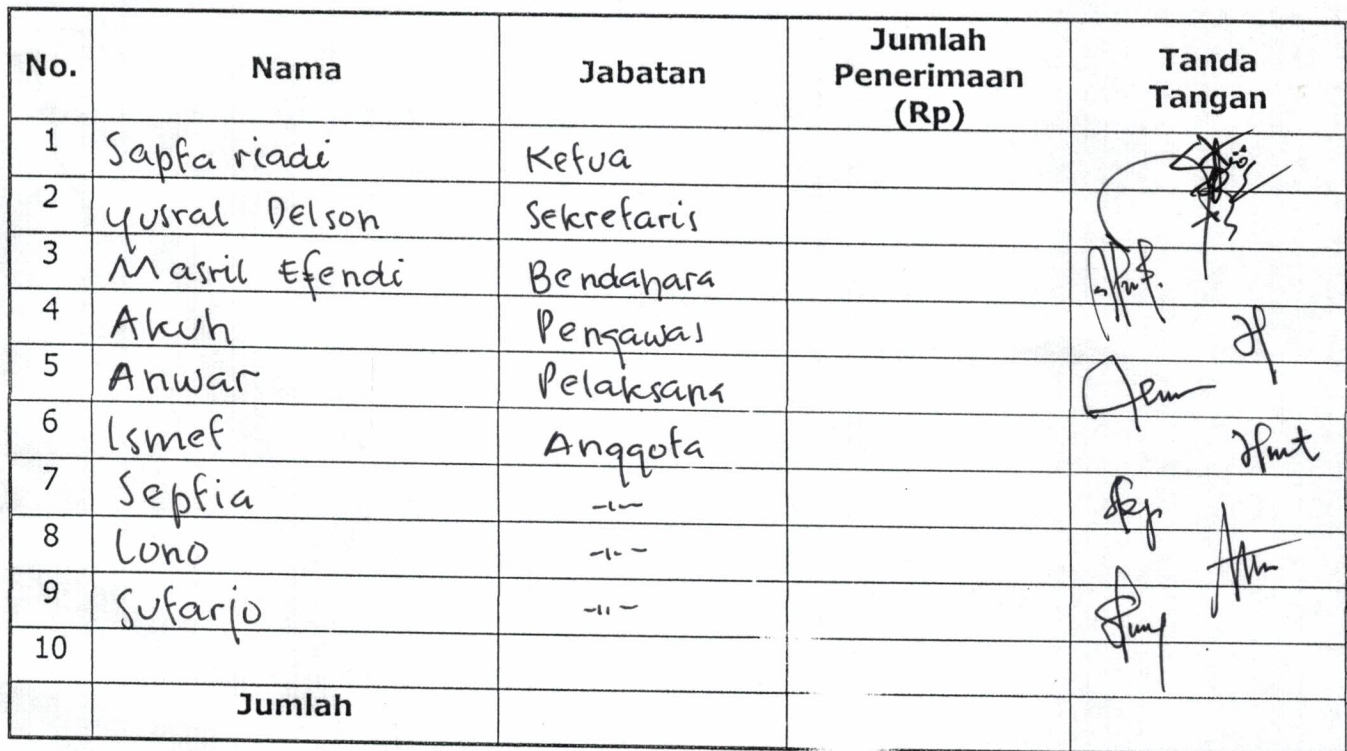 No. Nama Jabatan Jumlah Penerimaan (Rp) Tanda Tangan
1 Saptariadi Ketua
2 Yusral Delson Sekretaris
3 Masril Efendi Bendahara
4 Akuh Pengawas
5 Anwar Pelaksana
6 Ismet Anggota
7 Septia -"-
8 Lono -"-
9 Sutarjo -"-
10
Jumlah